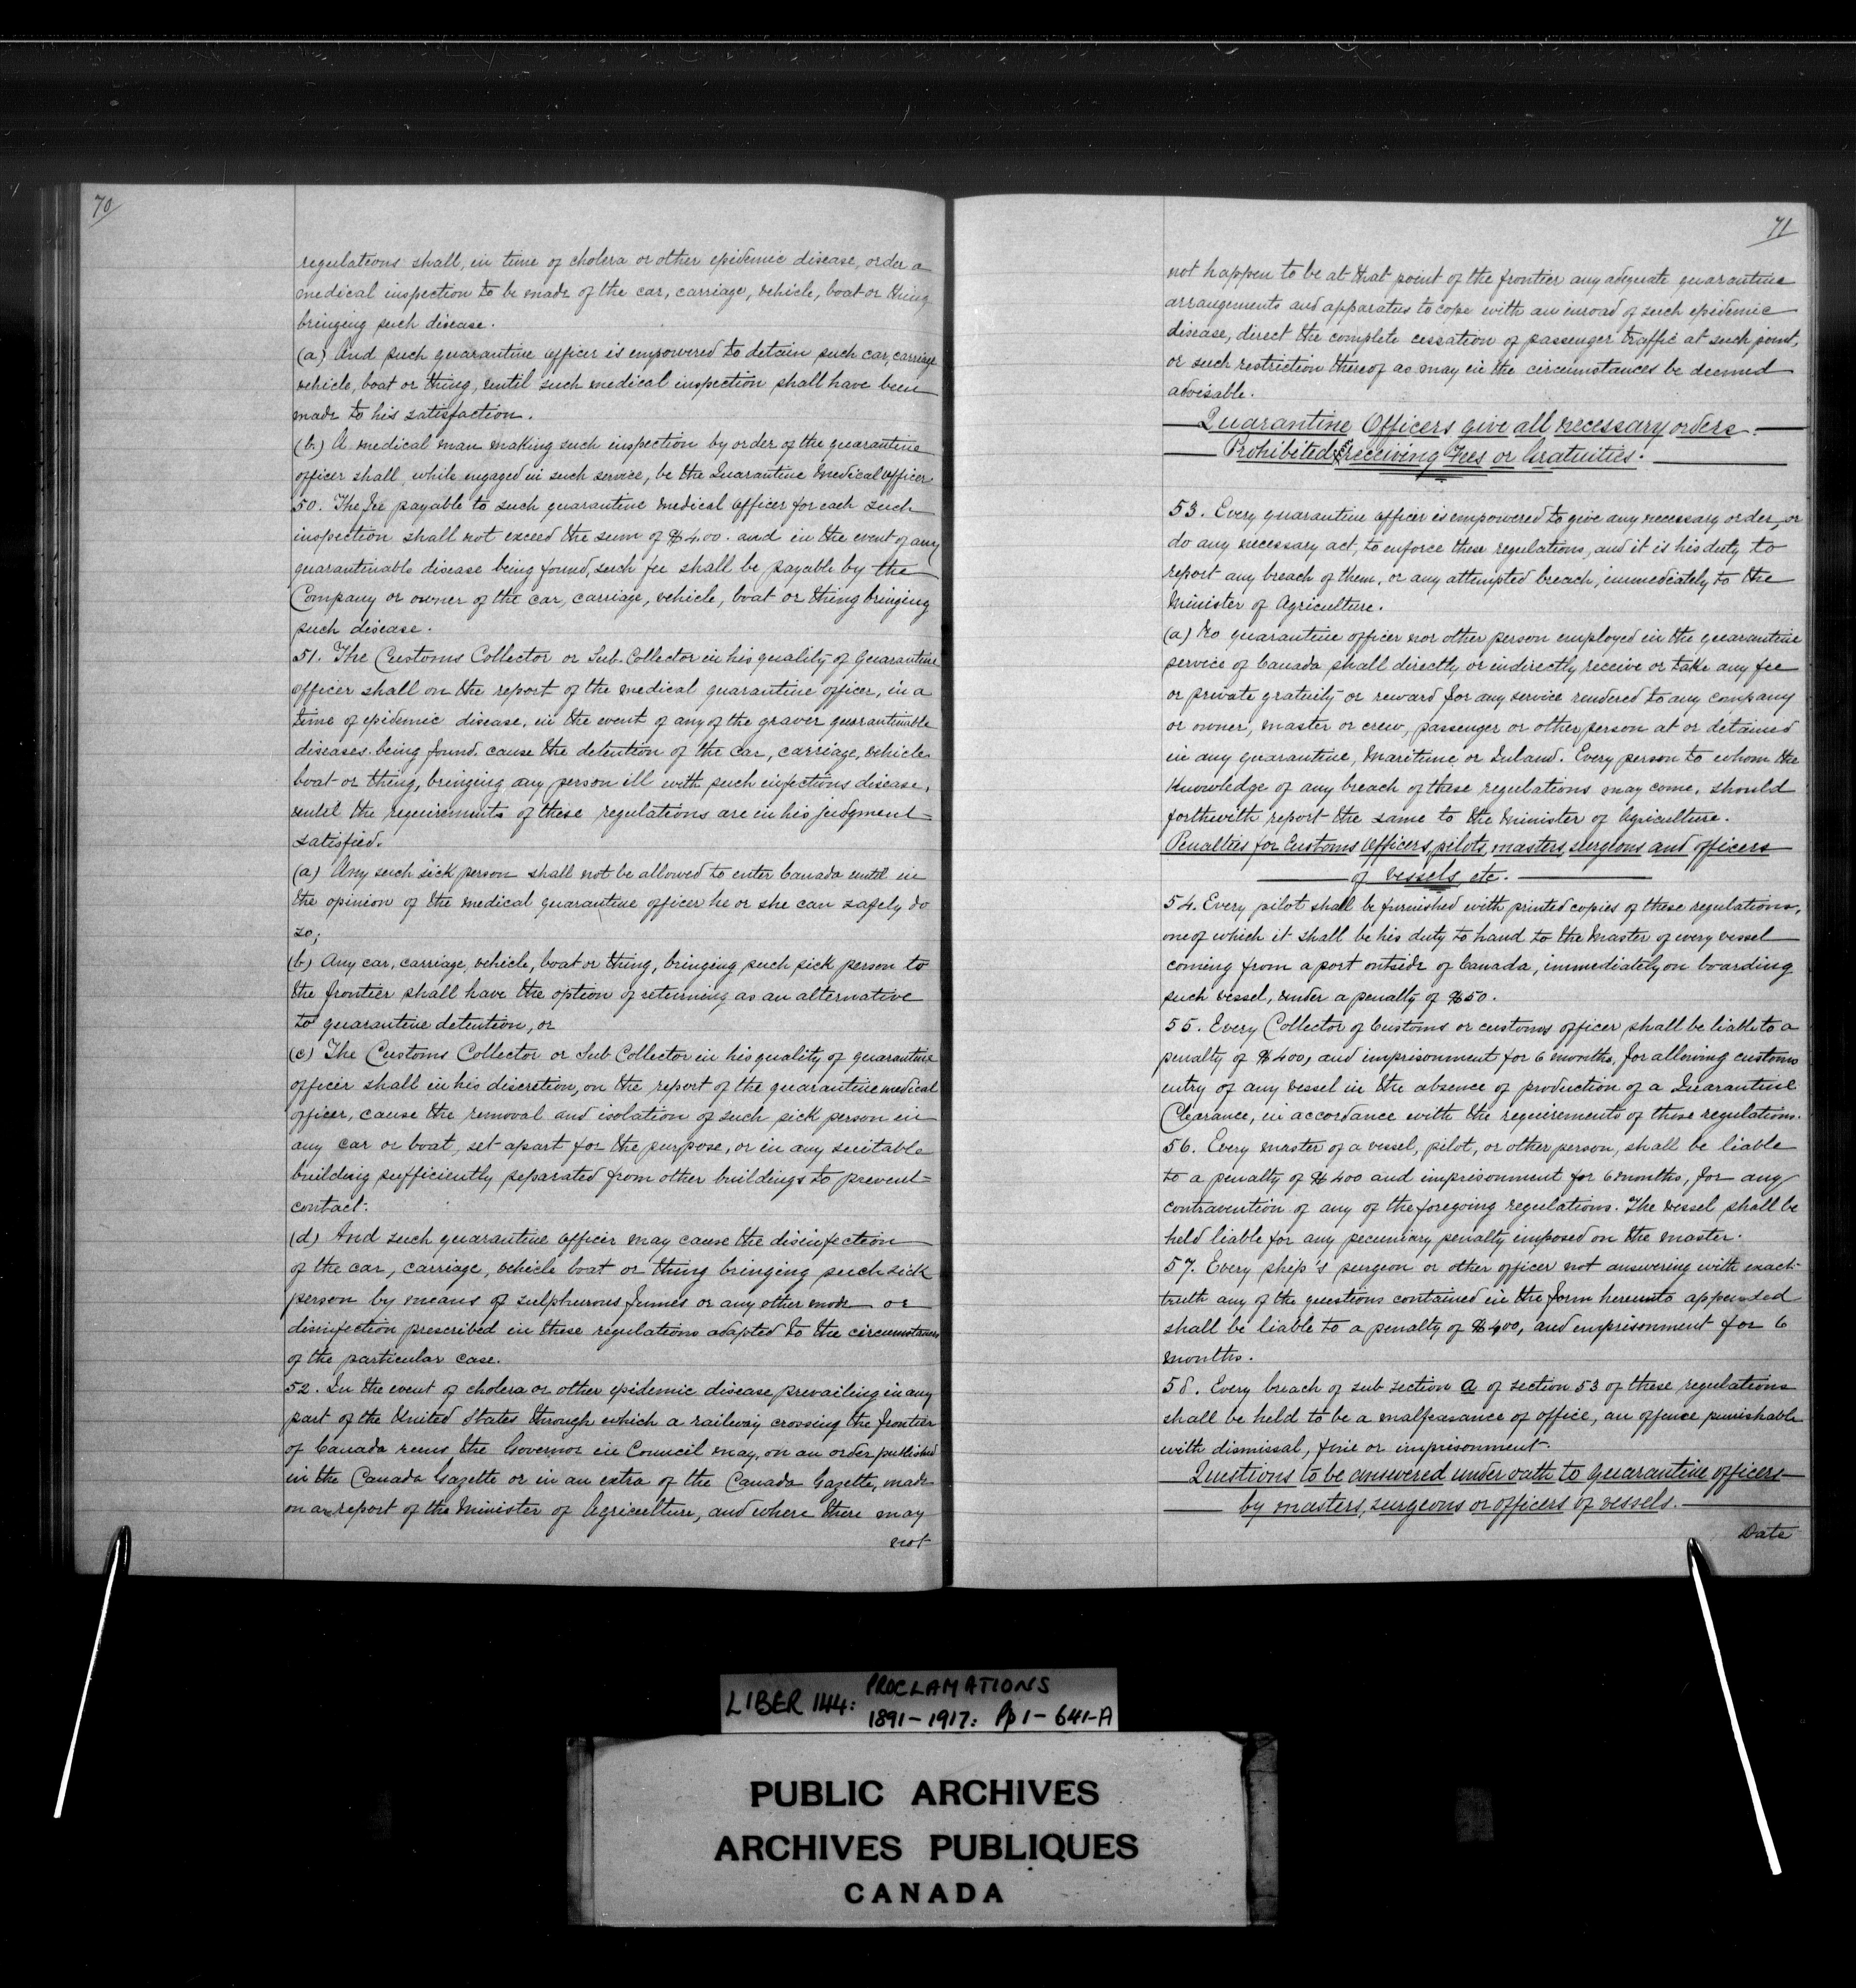 70
regulations shall, in time of cholera or other epidemic disease, order a
medical inspection to be made of the car, carriage, vehicle, boat or thing
bringing such disease.
(a) And such quarantine officer is empowered to detain such car, carriage
vehicle, boat or thing, until such medical inspection shall have been
made to his satisfaction.
(b) A medical man making such inspection by order of the quarantine
officer shall, while engaged in such service, be the Quarantine Medical Officer
50. The fee payable to such quarantine medical officer for each such
inspection shall not exceed the sum of $4.00. and in the event of any
quarantinable disease being found, such fee shall be payable by the
Company or owner of the car, carriage, vehicle, boat or thing bringing
such disease.
51. The Customs Collector or Sub. Collector in his quality of Quarantine
officer shall on the report of the medical quarantine officer, in a
time of epidemic disease, in the event of any of the graver quarantinable
diseases being found, cause the detention of the car, carriage, vehicle
boat or thing, bringing any person ill with such infectious disease,
until the requirements of these regulations are in his judgment=
satisfied.
(a) Any such sick person shall not be allowed to enter Canada until in
the opinion of the medical quarantine officer he or she can safely do
so;
(b) Any car, carriage, vehicle, boat or thing, bringing such sick person to
the frontier shall have the option of returning as an alternative
to quarantine detention, or
(c) The Customs Collector or Sub Collector in his quality of quarantine
officer shall in his discretion, on the report of the quarantine medical
officer, cause the removal and isolation of such sick person in
any car or boat, set apart for the purpose, or in any suitable
building sufficiently separated from other buildings to prevent=
contact.
(d) And such quarantine officer may cause the disinfection
of the car, carriage, vehicle boat or thing bringing such sick
person by means of sulphurous fumes or any other mode or
disinfection prescribed in these regulations adapted to the circumstances
of the particular case.
52. In the event of cholera or other epidemic disease prevailing in any
part of the United States through which a railway crossing the frontier
of Canada runs the Governor in Council may, on an order published
in the Canada Gazette or in an extra of the Canada Gazette, made
on a report of the Minister of Agriculture, and where there may
not
71
not happen to be at that point of the frontier any adequate quarantine
arrangements and apparatus to cope with an inroad of such epidemic
disease, direct the complete cessation of passenger traffic at such point,
or such restriction thereof as may in the circumstances be deemed
advisable.
Quarantine Officers give all necessary orders.
Prohibited receiving Fees or Gratuities.
53. Every quarantine officer is empowered to give any necessary order, or
do any necessary act, to enforce these regulations, and it is his duty to
report any breach of them, or any attempted breach, immediately to the
Minister of Agriculture.
(a) No quarantine officer nor other person employed in the quarantine
service of Canada shall directly or indirectly receive or take any fee
or private gratuity or reward for any service rendered to any company
or owner, master or crew, passenger or other person at or detained
in any quarantine, Maritime or Inland. Every person to whom the
knowledge of any breach of these regulations may come, should
forthwith report the same to the Minister of Agriculture.
Penalties for Customs Officers, pilots, masters, surgeons and officers
of vessels, etc.
54. Every pilot shall be furnished with printed copies of these regulations,
one of which it shall be his duty to hand to the Master of every vessel
coming from a port outside of Canada, immediately on boarding
such vessel, under a penalty of $50.
55. Every Collector of Customs or customs officer, shall be liable to a
penalty of $400, and imprisonment for 6 months, for allowing customs
entry of any vessel in the absence of production of a Quarantine
Clearance, in accordance with the requirements of these regulations.
56. Every master of a vessel, pilot, or other person, shall be liable
to a penalty of $400 and imprisonment for 6 months, for any
contravention of any of the foregoing regulations. The vessel shall be
held liable for any pecuniary penalty imposed on the master.
57. Every ship's surgeon or other officer not answering with exact
truth any of the questions contained in the form hereunto appended
shall be liable to a penalty of $400, and imprisonment for 6
months.
58. Every breach of sub section a of section 53 of these regulations
shall be held to be a malfeasance of office, an offence punishable
with dismissal, fine or imprisonment.
Questions to be answered under oath to quarantine officers
by masters, surgeons or officers of vessels.
Date
LIBER 144: PROCLAMATIONS
1891-1917: Pp 1-641-A
PUBLIC ARCHIVES
ARCHIVES PUBLIQUES
CANADA